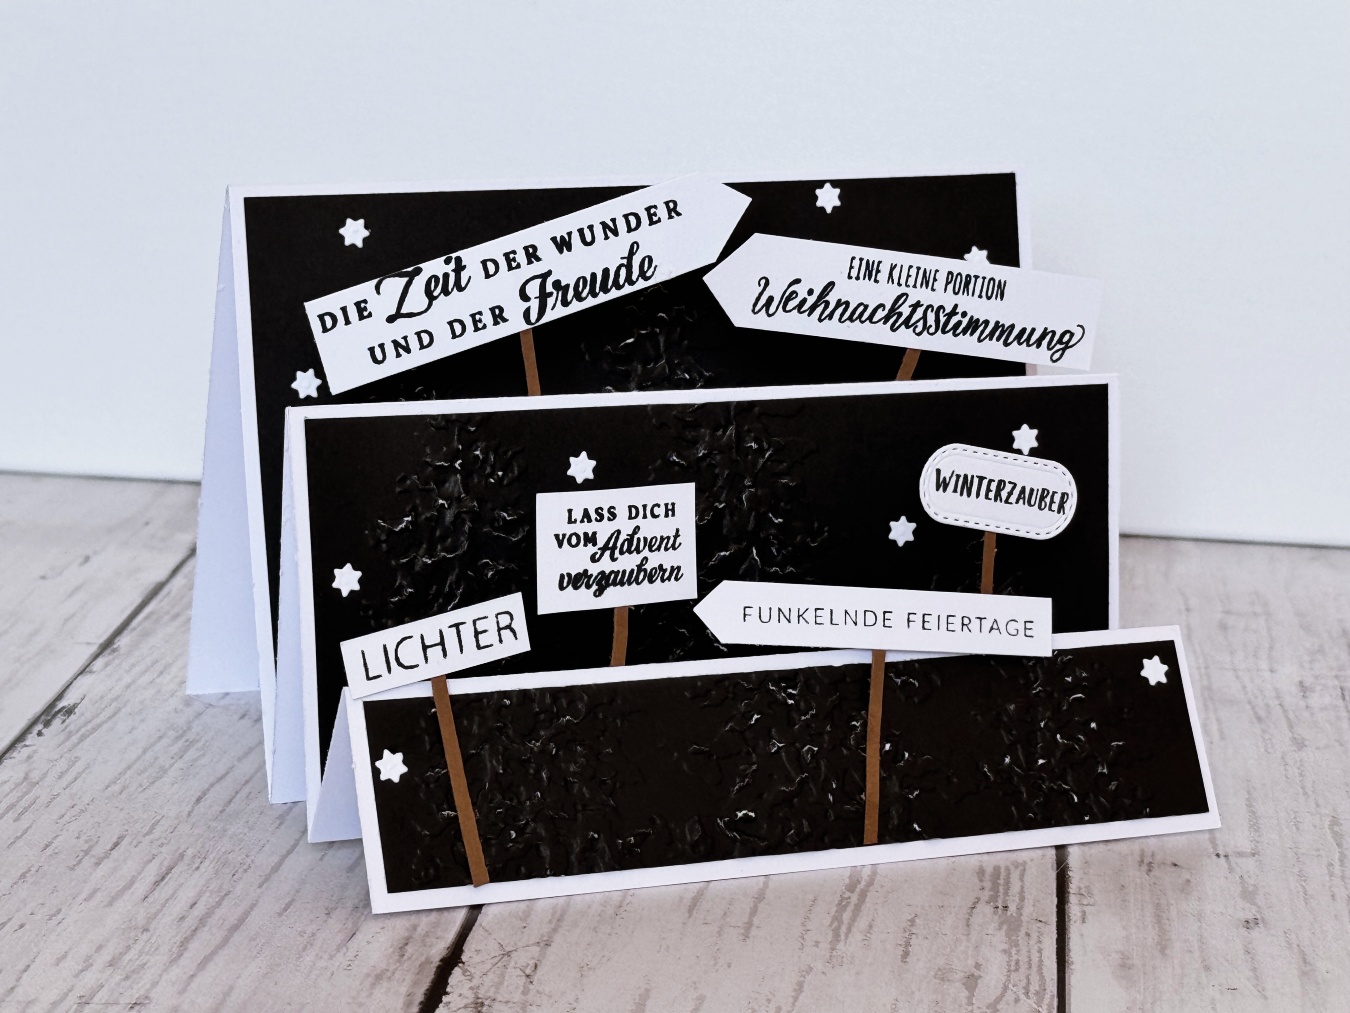 DIE Zeit DER WUNDER
UND DER Freude
EINE KLEINE PORTION
Weihnachtsstimmung
WINTERZAUBER
LASS DICH
VOM Advent
verzaubern
LICHTER
FUNKELNDE FEIERTAGE